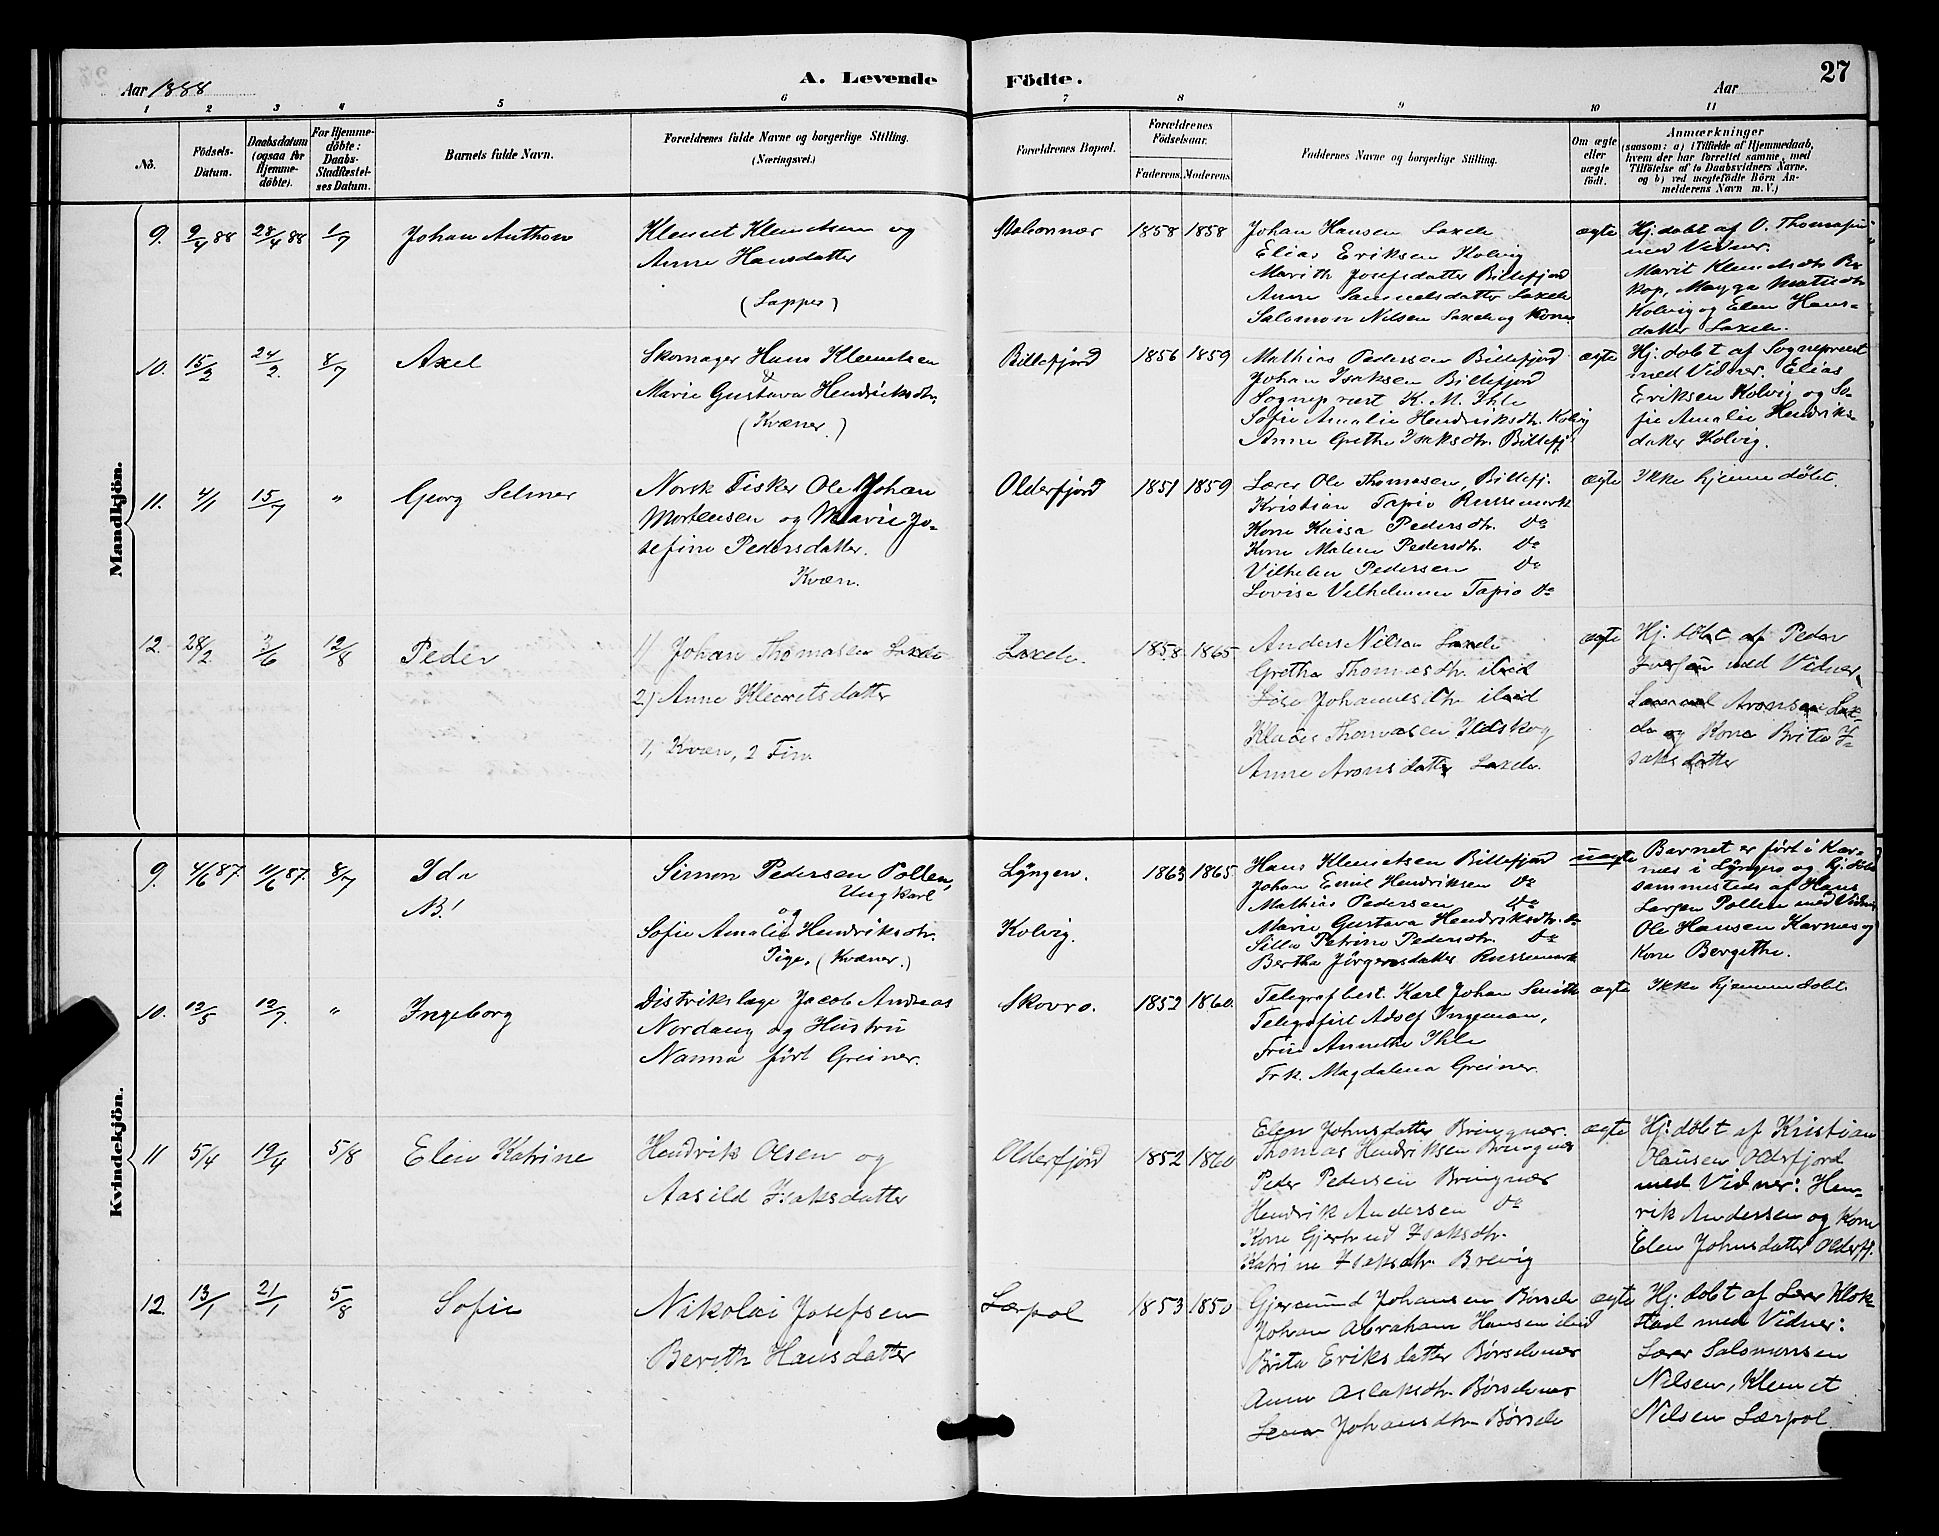 Aar 1888
A. Levende
Födte.
Aar
27
1 2 3 4 5 6 7 8 9 10 11
No.
Födsels-
Datum.
Daabsdatum
(ogsaa for
Hjemme-
döbte).
For Hjemme-
döbte:
Daabs-
Stadfæstel-
ses Datum.
Barnets fulde Navn.
Forældrenes fulde Navne og borgerlige Stilling.
(Næringsvei.)
Forældrenes Bopæl.
Forældrenes
Födselsaar.
Faderens. Moderens.
Faddernes Navne og borgerlige Stilling.
Om ægte
eller
uægte
födt.
Anmærkninger
(saasom: a) i Tilfælde af Hjemmedaab,
hvem der har forrettet samme, med
Tilföielse af to Daabsvidners Navne,
og b) ved uægtefödte Börn An-
melderens Navn m. V.)
Mandkjön.
9. 9/4 88 28/4 88 1/7
Johan Anthon
Klemet Klemetsen og
Anne Hansdatter
(Lapper)
1858 1858
Johan Hansen Laxelv
Elias Eriksen Kolvig
Marith Josefsdatter Billefjord
Anne Samuelsdatter Laxelv
Salomon Nilsen Laxelv og Kone
ægte
Hj. døbt af O. Thomassen
med Vidner.
Marit Klemetsdtr
Kolvig og Elen Hans-
datter Laxelv.
10. 15/2 24/2. 8/7
Axel
Skomager Hans Klemetsen
&
Marie Gustava Hendriksdtr.
(Kvæner.)
Billefjord
1856 1859
Mathias Pedersen Billefjord
Johan Isaksen Billefjord
Sogneprest K. M. Ihle
Sofie Amalie Hendriksdtr. Kolvig
Anne Grethe Isaksdtr. Billefj.
ægte
Hj. døbt af Sogneprest
med Vidner. Elias
Eriksen Kolvig og So-
fie Amalie Hendriks-
datter Kolvig.
11. 4/1 15/7 "
Georg Selmer
Norsk Fisker Ole Johan
Mortensen og Marie Jo-
sefine Pedersdatter.
Kvæn.
Olderfjord
1851 1859
Lærer Ole Thomasen, Billefj.
Kristian Tapio Russemark
Kone Kaisa Pedersdtr. Do
Kone Malene Pedersdtr. Do
Vilhelm Pedersen Do
Lovise Vilhelmine Tapio Do
ægte
Ikke hjemmedøbt.
12. 28/2. 3/6 12/8
Peder
1) Johan Thomasen Laxelv
2) Anne Klemetsdatter
1, Kvæn, 2 Fin.
Laxelv.
1858 1865
Anders Nilsen Laxelv
Grethe Thomasdtr. ibid
Johannesdtr ibid
Klaus Thomasen Ildskog
Anne Aronsdatter Laxelv.
ægte
Hj. døbt af Peder
Iversen med Vidner
Samuel Aronsen Lax-
elv og Kone Brita I-
saksdatter
Kvindekjön.
9. 4/6 87. 11/6 87. 8/7
Ida
NB!
Simon Pedersen Pollen,
Ungkarl
og
Sofie Amalie Hendriksdtr.
Pige. (Kvæner.)
Lyngen.
Kolvig.
1863 1865
Hans Klemetsen Billefjord
Johan Emil Hendriksen Do
Mathias Pedersen Do
Marie Gustava Hendriksdtr. Do
Silla Petrine Pedersdtr. Do
Bertha Jørgensdatter Russemark
uægte
Barnet er født i Kar-
næs i Lyngen og hj. døbt
sammesteds af Hans
Larsen Pollen med Vidner
Ole Hansen Karnes og
Kone Bergithe.
10. 12/5 12/7. "
Ingeborg
Distriktslæge Jacob Andreas
Nordang og Hustru
Nanna født Greiner.
Skovro.
1852 1860.
Telegrafbest. Karl Johan Smith
Telegrafist Adolf Ingeman,
Frue Annethe Ihle
Frk. Magdalena Greiner.
ægte
Ikke hjemmedøbt.
11 5/4 19/4 5/8
Elen Katrine
Hendrik Olsen og
Aasild Isaksdatter
Olderfjord
1852 1860
Elen Johnsdatter Bringnær.
Thomas Hendriksen Bringnær
Peder Pedersen Bringnær
Hendrik Andersen Do
Kone Gjertrud Isaksdtr.
Katrine Isaksdtr. Brevig
ægte
Hj. døbt af Kristian
Olausen Olderfjord
med Vidner: Hen-
rik Andersen og Kone
Elen Johnsdatter Olderfj.
12 13/1 21/1 5/8
Sofie
Nikolai Josefsen
Berith Hansdatter
Lærpol
1853 1850
Gjermund Johansen Børselv
Johan Abraham Hansen ibid
Brita Eriksdatter Børselvnes
Anne Aslaksdtr. Børselvnes
Lena Johansdtr. Børselv
ægte
Hj. døbt af Lærer Klok-
stad med Vidner:
Lærer Salomonsen
Nilsen, Klemet
Nilsen Lærpol